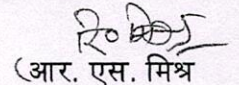 (आर. एस. मिश्र